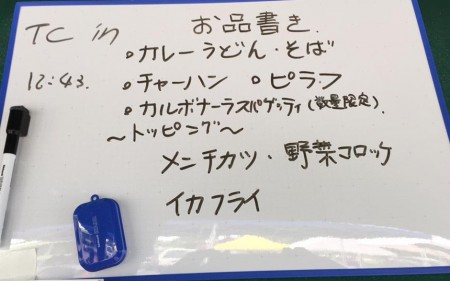 TC in お品書き.
12:43. ◦カレーうどん・そば
◦チャーハン ◦ピラフ
◦カルボナーラスパゲッティ(数量限定).
〜トッピング〜
メンチカツ・野菜コロッケ
イカフライ